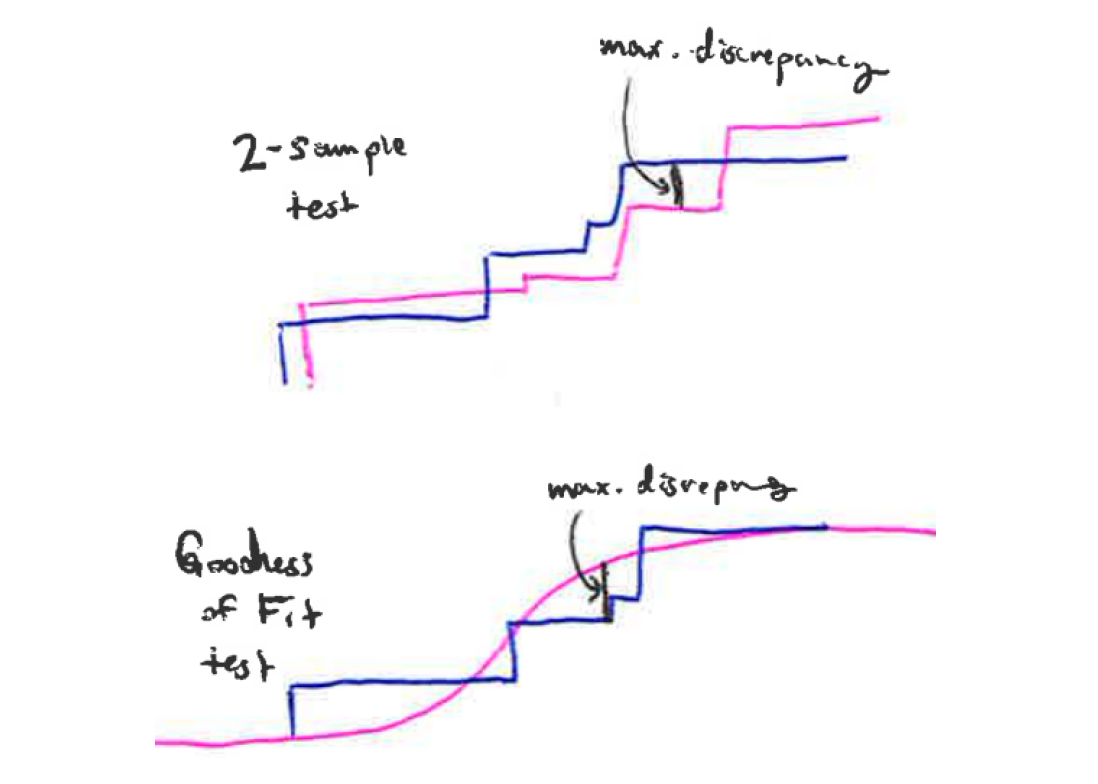 max. discrepancy
2-Sample
test
max. disrepancy
Goodness
of Fit
test